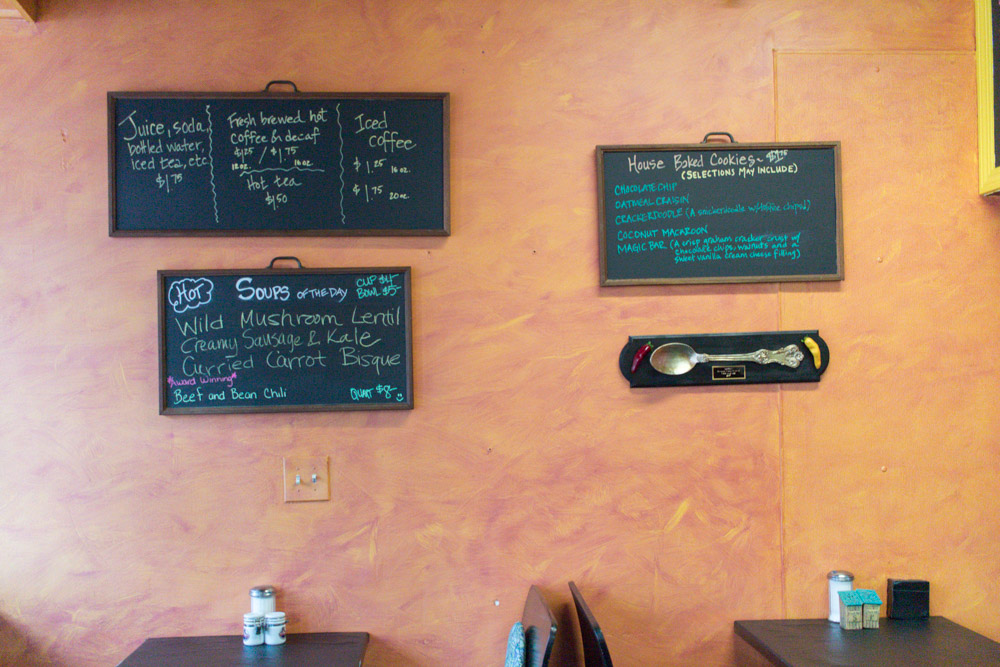 Juice, soda,
bottled water,
iced tea, etc
$1.75
Fresh brewed hot
coffee & decaf
$1.25 / $1.75
12 oz. 16 oz.
Hot tea
$1.50
Iced
coffee
$1.25 16 oz.
$1.75 20 oz.
HOT
SOUPS OF THE DAY
CUP $4-
BOWL $5-
Wild Mushroom Lentil
Creamy Sausage & Kale
Curried Carrot Bisque
*Award Winning*
Beef and Bean Chili
QUART $8-
House Baked Cookies~ $1.75
(SELECTIONS MAY INCLUDE)
CHOCOLATE CHIP
OATMEAL CRAISIN
CRACKERDOODLE (A snickerdoodle w/toffee chips!)
COCONUT MACAROON
MAGIC BAR (A crisp graham cracker crust w/
chocolate chips, walnuts and a
sweet vanilla cream cheese filling)